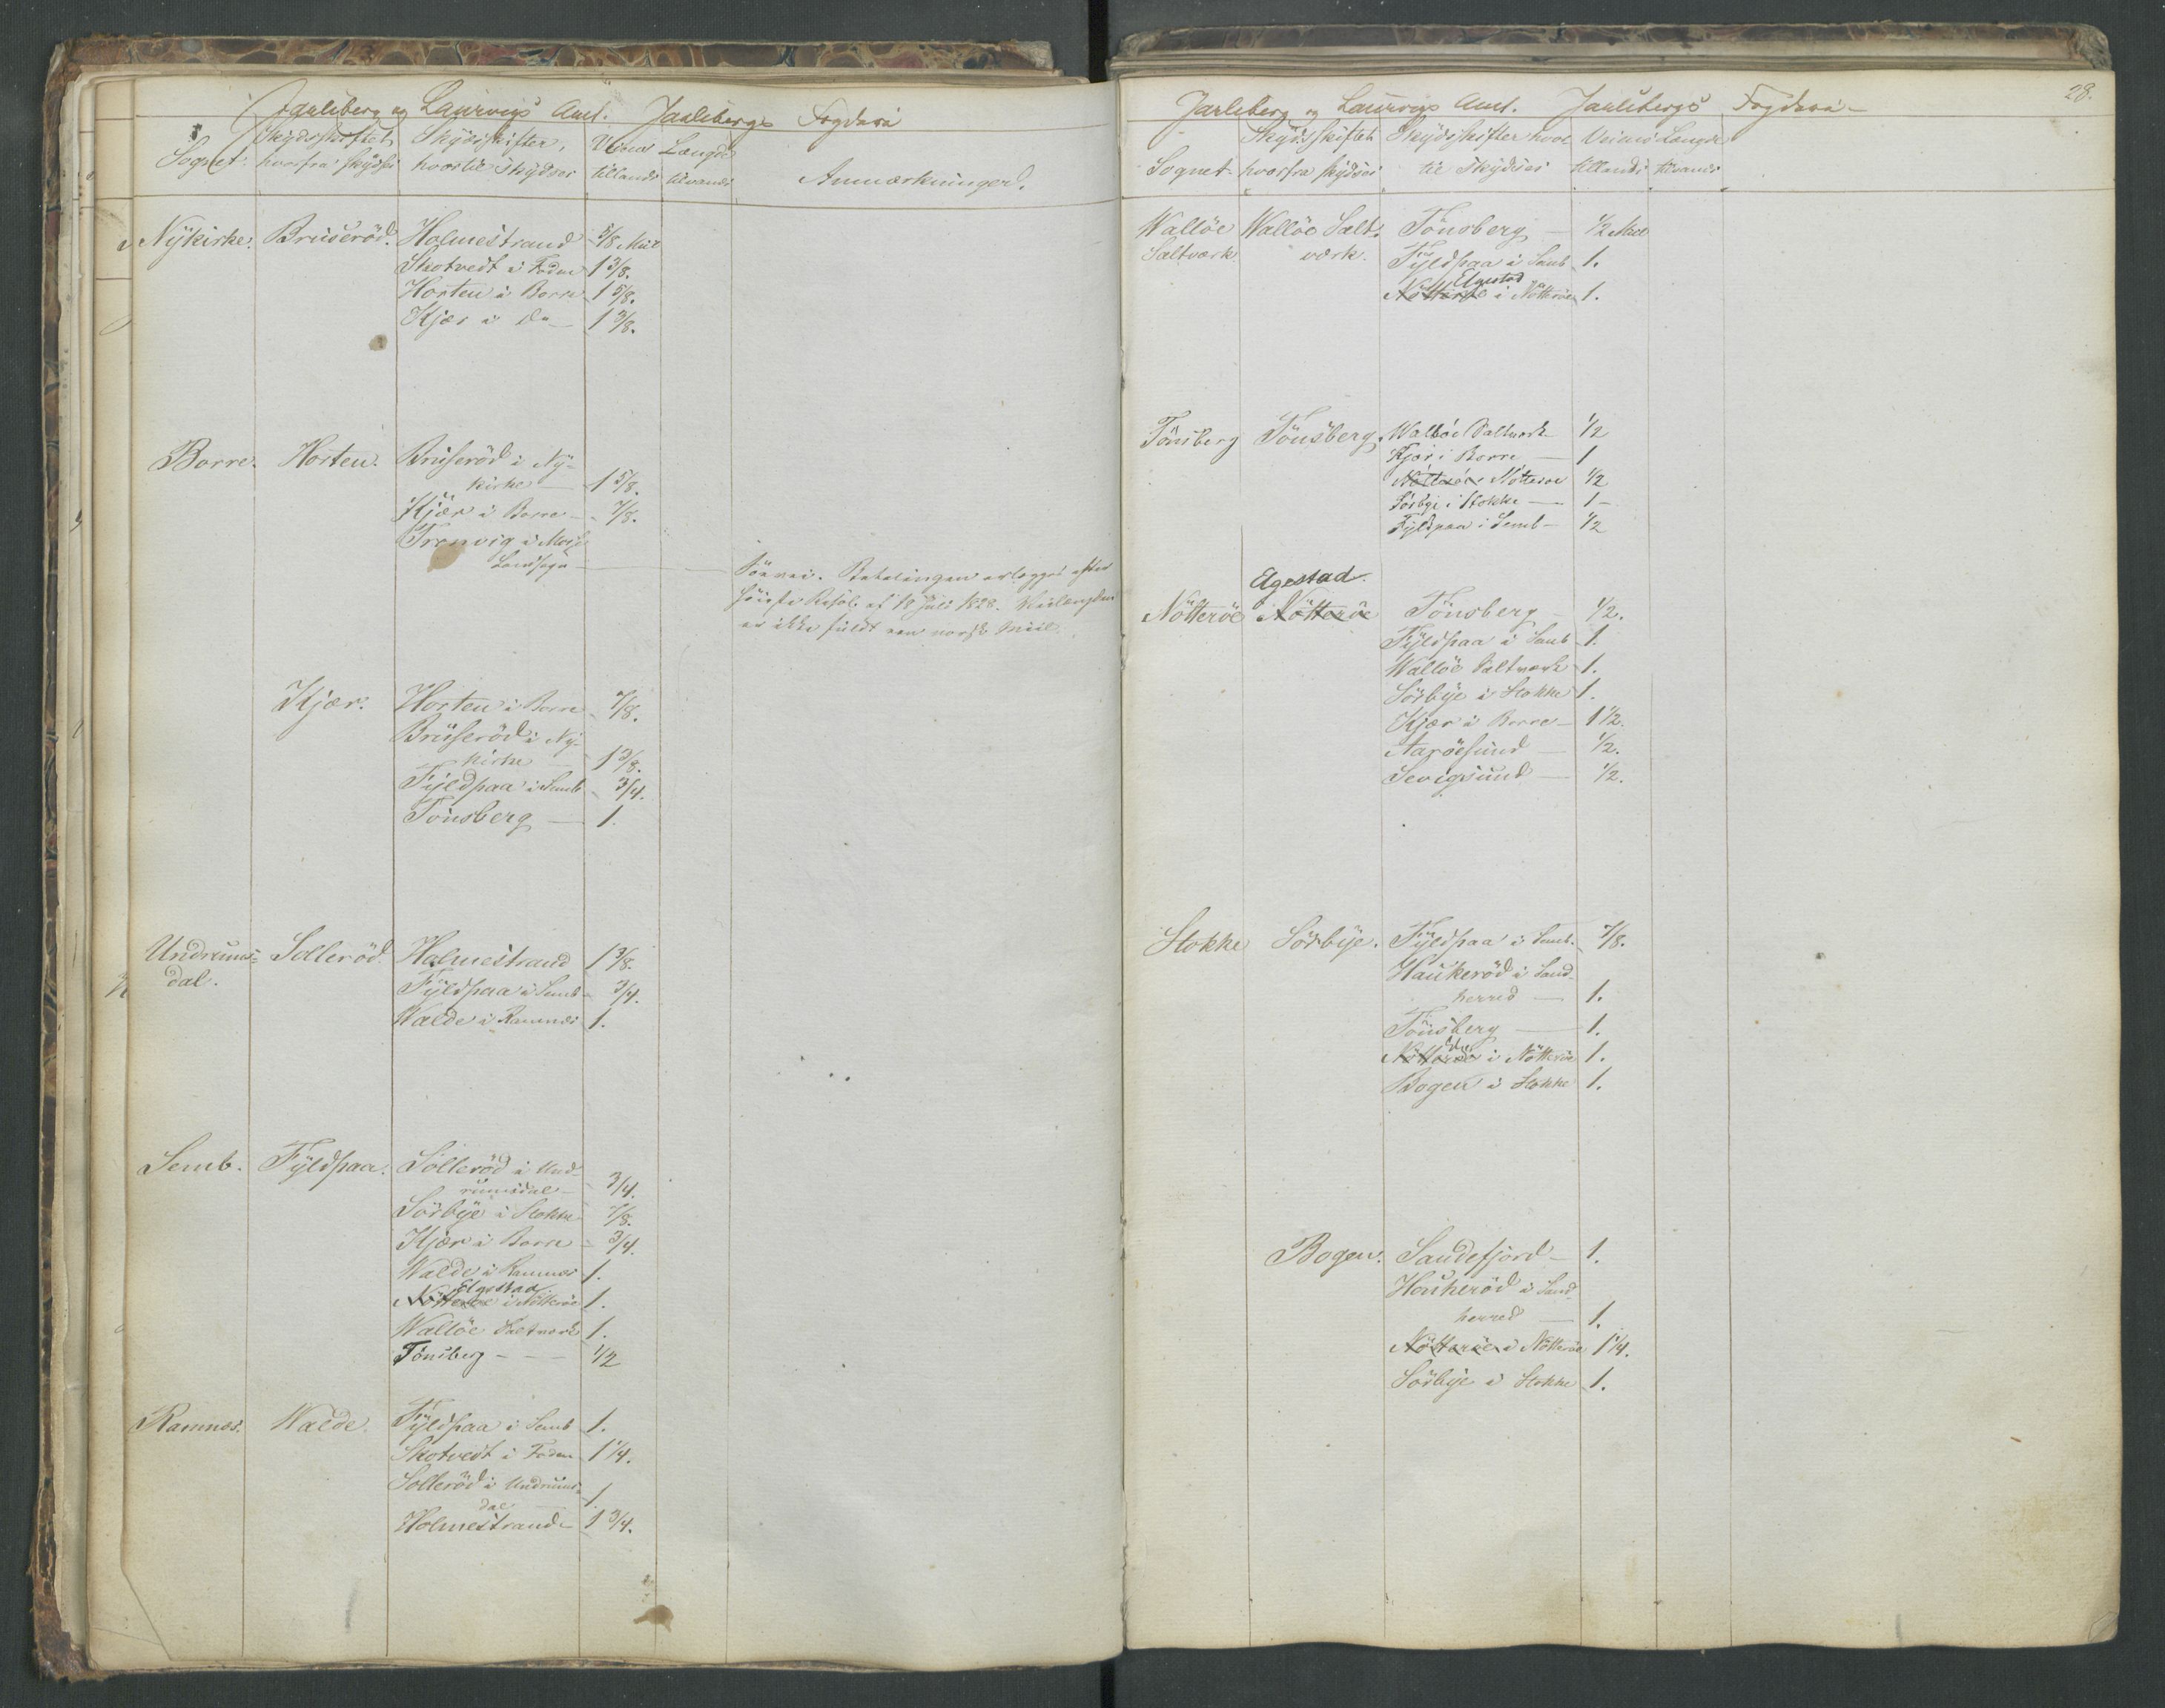 Jarlsberg og Laurvigs Amt. Jarlsbergs Fogderi
Sognet. Skydsskiftet hvorfra skydses Skydsskifter, hvortil skydses Veiens Længde tillands tilvands Anmærkninger.
Nykirke. Bruserød. Holmestrand 5/8 Miil
Skotvedt i Foden 1 3/8.
Horten i Borre 1 5/8.
Kjær i do 1 3/8.
Borre. Horten. Bruserød i Ny-
kirke 1 5/8.
Kjær i Borre 7/8.
i Moss
Landsogn Söevei. Betalingen erlægges efter
höieste Resol. af 18 Juli 1828. Veilængden
er ikke fuldt een norsk Miil.
Kjær. Horten i Borre 7/8.
Bruserød i Ny-
kirke 1 3/8.
Fyldpaa i Semb 3/4.
Tönsberg 1.
Undrums- Sollerød. Holmestrand 1 3/8.
dal. Fyldpaa i Semb 3/4.
Walde i Ramnæs 1.
Semb. Fyldpaa. Sollerød i Und-
rumsdal 3/4.
Sörbye i Stokke 7/8.
Kjær i Borre 3/4.
Walde i Ramnæs 1.
Elgestad
Nötteröe i Nötteröe 1.
Wallöe Saltværk 1.
Tönsberg 1/2
Ramnæs. Walde. Fyldpaa i Semb 1.
Skotvedt i Foden 1 1/4.
Sollerød i Undrums-
dal 1.
Holmestrand 1 3/4.
28.
Jarlsberg og Laurvigs Amt. Jarlsbergs Fogderi
Skydsskiftet Skydsskifter hvor Veiens Længde
Sognet hvorfra skydses til skydses tillands tilvands
Wallöe Wallöe Salt- Tönsberg 1/2 Miil
Saltværk. værk. Fyldpaa i Semb 1.
Elgestad
Nötteröe i Nötteröe 1.
Tönsberg Tönsberg. Walløe Saltværk 1/2
Kjær i Borre 1
Nötteröe i Nötteröe 1/2
Sörbye i Stokke 1
Fyldpaa i Semb 1/2
Elgestad
Nötteröe Nötteröe Tönsberg 1/2.
Fyldpaa i Semb 1.
Wallöe Saltværk 1.
Sörbye i Stokke 1.
Kjær i Borre 1 1/2.
Aaröesund 1/2.
Sevigsund 1/2.
Stokke Sörbye. Fyldpaa i Semb. 7/8.
Haukeröd i Sand-
herred 1.
Tönsberg 1.
Nötteröe i Nötteröe 1.
Bogen i Stokke 1.
Bogen. Sandefjord 1.
Haukeröd i Sand-
herred 1.
Nötteröe i Nötteröe 1 1/4.
Sörbye i Stokke 1.